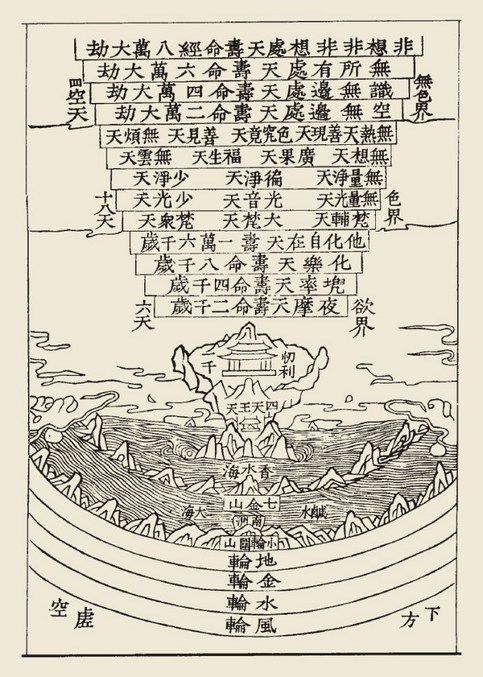 非想非非想處天壽命經八萬大劫
無所有處天壽命六萬大劫
無色界
四空天
識無邊處天壽命四萬大劫
空無邊處天壽命二萬大劫
無熱天 善現天 色究竟天 善見天 無煩天
無想天 廣果天 福生天 無雲天
無量淨天 徧淨天 少淨天
色界
十八天
無量光天 光音天 少光天
梵輔天 大梵天 梵衆天
他化自在天壽一萬六千歲
化樂天壽命八千歲
兜率天壽命四千歲
夜摩天壽命二千歲
欲界
六天
忉利
千
四天王天
香水海
七金山
鹹水
大海
南洲
小輪圍山
地輪
金輪
水輪
風輪
下方
虛空